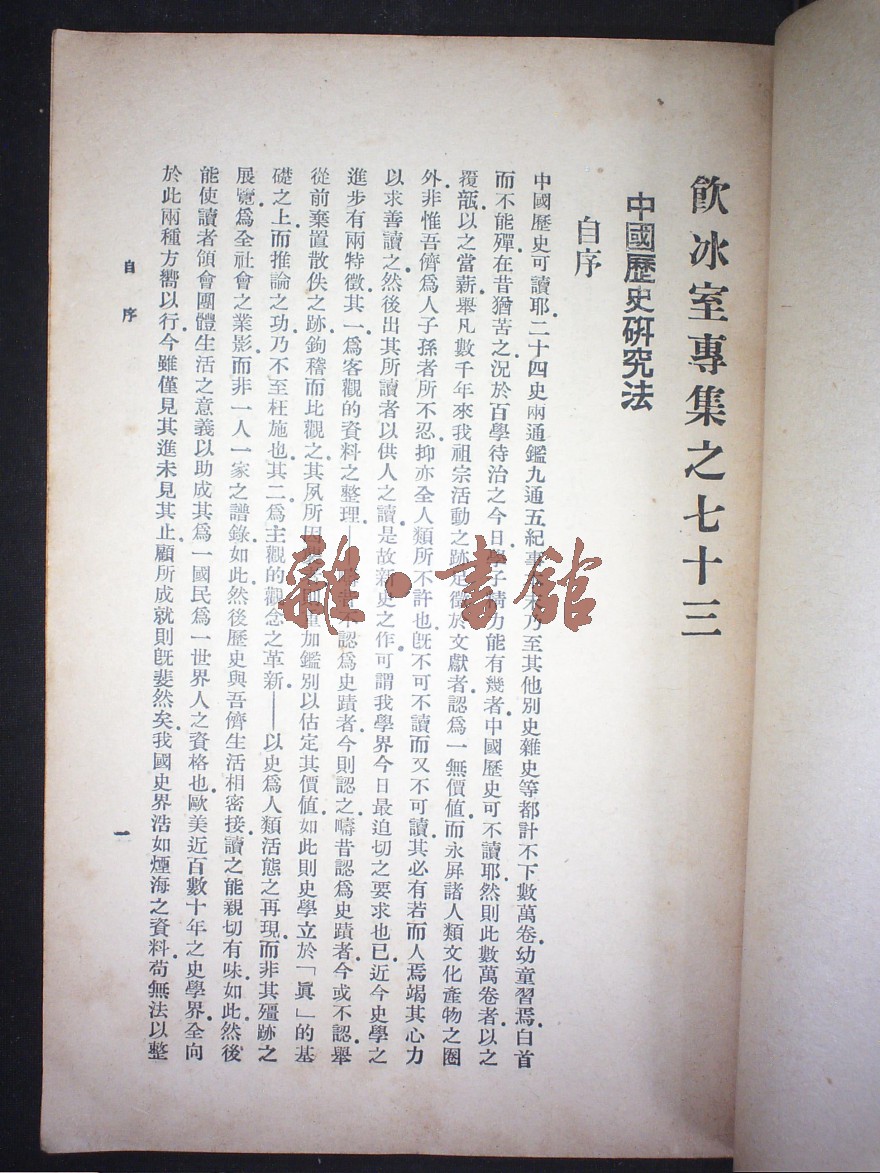 飲冰室專集之七十三
中國歷史研究法
自序
中國歷史可讀耶.二十四史兩通鑑九通五紀事本末乃至其他別史雜史等都計不下數萬卷.幼童習焉.白首
而不能殫.在昔猶苦之.況於百學待治之今日.學子精力能有幾者.中國歷史可不讀耶.然則此數萬卷者以之
覆瓿.以之當薪.舉凡數千年來我祖宗活動之跡足徵於文獻者.認爲一無價值.而永屏諸人類文化產物之圈
外.非惟吾儕爲人子孫者所不忍.抑亦全人類所不許也.旣不可不讀而又不可讀.其必有若而人焉.竭其心力
以求善讀之.然後出其所讀者以供人之讀.是故新史之作.可謂我學界今日最迫切之要求也已.近今史學之
進步有兩特徵.其一.爲客觀的資料之整理——不認爲史蹟者.今則認之.疇昔認爲史蹟者.今或不認.舉
從前棄置散佚之跡.鉤稽而比觀之.其夙所因加鑑別以估定其價值.如此則史學立於「眞」的基
礎之上.而推論之功.乃不至枉施也.其二.爲主觀的觀念之革新——以史爲人類活態之再現.而非其殭跡之
展覽.爲全社會之業影.而非一人一家之譜錄.如此.然後歷史與吾儕生活相密接.讀之能親切有味.如此.然後
能使讀者領會團體生活之意義.以助成其爲一國民爲一世界人之資格也.歐美近百數十年之史學界.全向
於此兩種方嚮以行.今雖僅見其進.未見其止.顧所成就則旣斐然矣.我國史界浩如煙海之資料.苟無法以整
自序
一
雜·書館